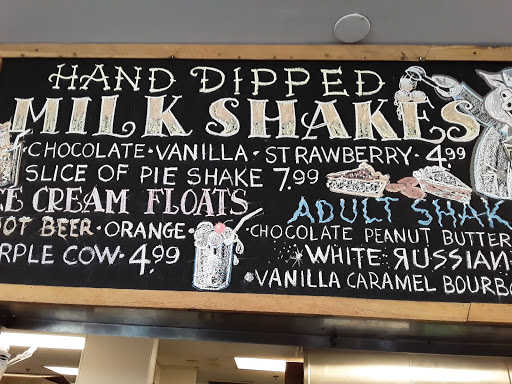 HAND DIPPED
MILK SHAKES
·CHOCOLATE·VANILLA·STRAWBERRY·4.99
SLICE OF PIE SHAKE 7.99
CE CREAM FLOATS
OOT BEER·ORANGE·
RPLE COW·4.99
ADULT SHAK
CHOCOLATE PEANUT BUTTER
WHITE ЯUSSIAN
·VANILLA CARAMEL BOURBO